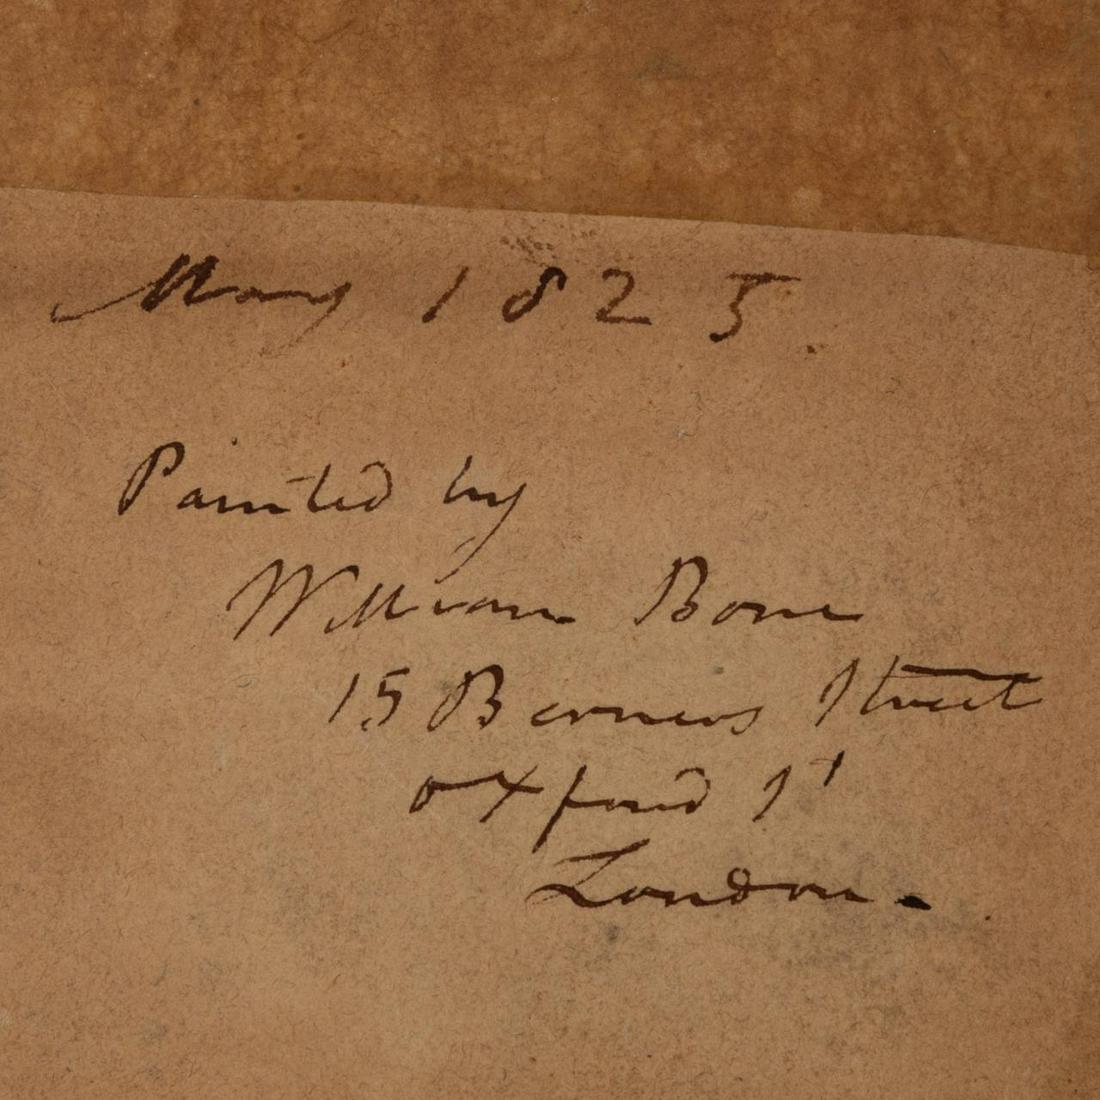 May 1825.
Painted by
William Bone
15 Berners Street
oxford St
London.